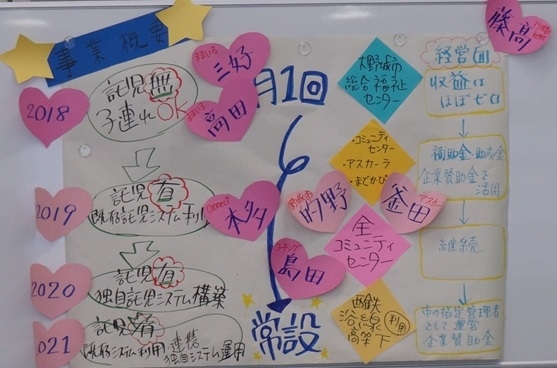 事業概要
2018
託児無
子連れOK
2019
託児有
既存託児システム利用
2020
託児有
独自託児システム構築
021
託児有
既存システム利用 連携
独自システム運用
三好
高田
月1回
本多
島田
常設
大野城市
総合福祉
センター
・コミュニティ
センター
・アスカーラ
・まどかぴあ
的野
釜田
全
コミュニティ
センター
西鉄
高架下
利用
藤高
経営面
収益は
ほぼゼロ
補助金 助成金
企業賛助金を
活用
継続
市の指定管理者
として運営
企業賛助金